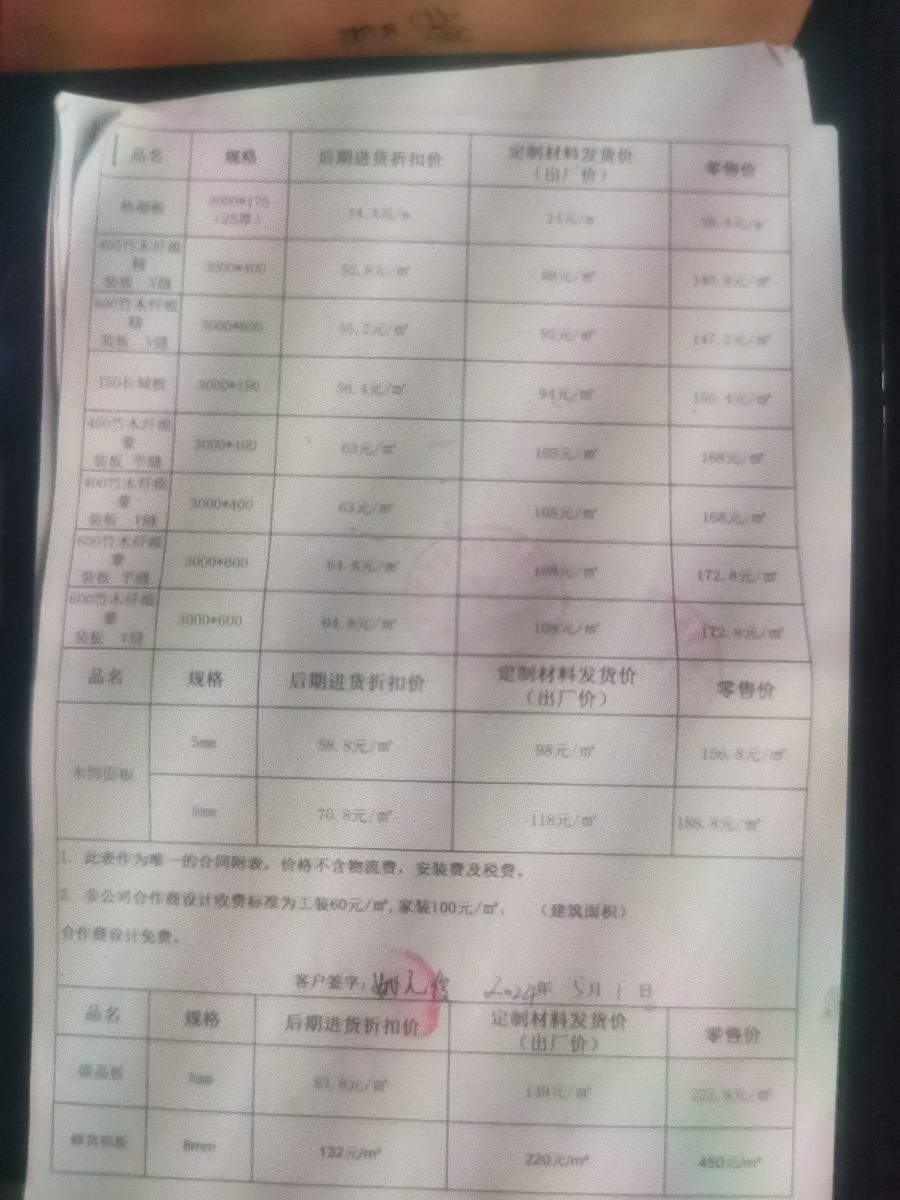 品名 规格 后期进货折扣价 定制材料发货价 零售价
（出厂价）
格栅板 3000*170 14.4元/m 24元/m 38.4元/m
（25厚）
400竹木纤维
精 3000*400 52.8元/㎡ 88元/㎡ 140.8元/㎡
装板 V缝
600竹木纤维
精 3000*600 55.2元/㎡ 92元/㎡ 147.2元/㎡
装板 V缝
150长城板 3000*150 56.4元/㎡ 94元/㎡ 150.4元/㎡
400竹木纤维
豪 3000*400 63元/㎡ 105元/㎡ 168元/㎡
装板 平缝
400竹木纤维
豪 3000*400 63元/㎡ 105元/㎡ 168元/㎡
装板 V缝
600竹木纤维
豪 3000*600 64.8元/㎡ 108元/㎡ 172.8元/㎡
装板 平缝
600竹木纤维
豪 3000*600 64.8元/㎡ 108元/㎡ 172.8元/㎡
装板 V缝
品名 规格 后期进货折扣价 定制材料发货价 零售价
（出厂价）
木饰面板 5mm 58.8元/㎡ 98元/㎡ 156.8元/㎡
8mm 70.8元/㎡ 118元/㎡ 188.8元/㎡
1. 此表作为唯一的合同附表，价格不含物流费，安装费及税费。
2. 非公司合作商设计收费标准为工装60元/㎡,家装100元/㎡， （建筑面积）
合作商设计免费。
客户签字： 2024年 5月 1 日
品名 规格 后期进货折扣价 定制材料发货价 零售价
（出厂价）
碳晶板 8mm 83.8元/㎡ 139元/㎡ 222.8元/㎡
蜂窝铝板 8mm 132元/m² 220元/m² 450元/m²